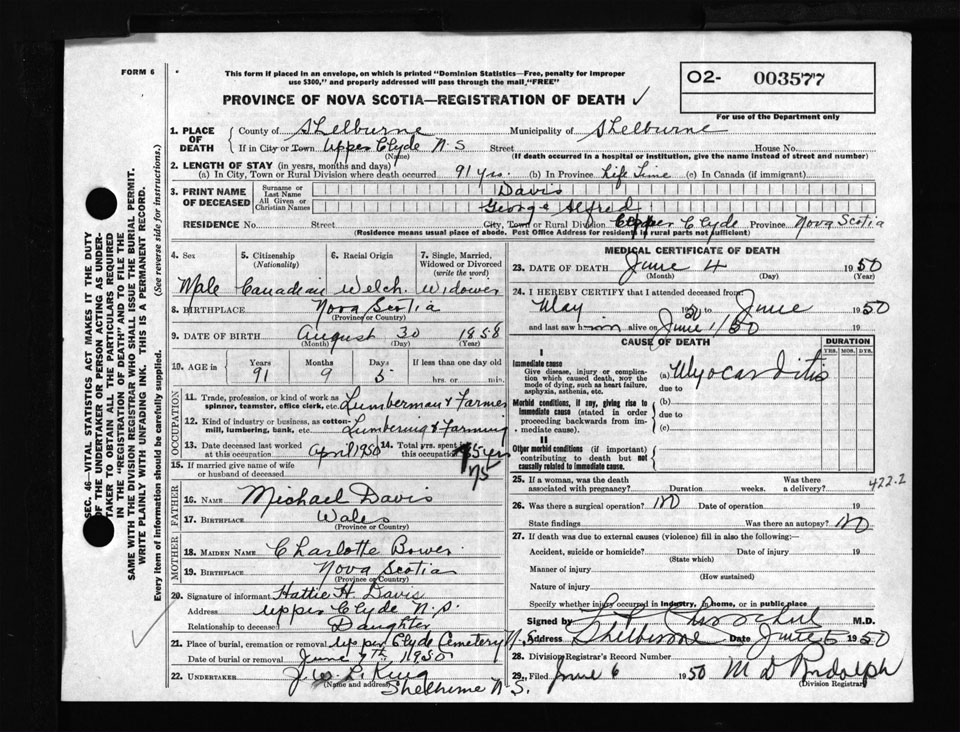 FORM 6
This form if placed in an envelope, on which is printed "Dominion Statistics—Free, penalty for improper
use $300," and properly addressed will pass through the mail, "FREE"
O2- 003577
PROVINCE OF NOVA SCOTIA—REGISTRATION OF DEATH ✓
For use of the Department only
1. PLACE OF DEATH { County of Shelburne Municipality of Shelburne
If in City or Town Upper Clyde N.S Street House No.
(Name) (If death occurred in a hospital or institution, give the name instead of street and number)
2. LENGTH OF STAY (in years, months and days)
(a) In City, Town or Rural Division where death occurred 91 yrs. (b) In Province Life Time (c) In Canada (if immigrant)
3. PRINT NAME OF DECEASED { Surname or Last Name Davis
All Given or Christian Names George Alfred
RESIDENCE No. Street City, Town or Rural Division Upper Clyde Province Nova Scotia
(Residence means usual place of abode. Post Office Address for residents in rural parts not sufficient)
4. Sex 5. Citizenship (Nationality) 6. Racial Origin 7. Single, Married, Widowed or Divorced (write the word)
Male Canadian Welch Widower
8. BIRTHPLACE Nova Scotia
(Province or Country)
9. DATE OF BIRTH August 30 1858
(Month) (Day) (Year)
10. AGE in { Years Months Days If less than one day old
91 9 5 hrs. or min.
OCCUPATION
11. Trade, profession, or kind of work as spinner, teamster, office clerk, etc. Lumberman & Farmer
12. Kind of industry or business, as cotton-mill, lumbering, bank, etc. Lumbering & Farming
13. Date deceased last worked at this occupation April 1950 14. Total yrs. spent in this occupation 75
15. If married give name of wife or husband of deceased
FATHER
16. NAME Michael Davis
17. BIRTHPLACE Wales
(Province or Country)
MOTHER
18. MAIDEN NAME Charlotte Bower
19. BIRTHPLACE Nova Scotia
(Province or Country)
20. Signature of informant Hattie H. Davis
Address Upper Clyde N.S.
Relationship to deceased Daughter
21. Place of burial, cremation or removal Upper Clyde Cemetery N.S.
Date of burial or removal June 7th 1950
22. UNDERTAKER J.W.L. King
(Name and address) Shelburne N.S.
MEDICAL CERTIFICATE OF DEATH
23. DATE OF DEATH June 4 1950
(Month) (Day)
24. I HEREBY CERTIFY that I attended deceased from
May 1950 to June 1950
and last saw him alive on June 1/50 19
CAUSE OF DEATH DURATION
YRS. MOS. DYS.
I
Immediate cause
Give disease, injury or complication which caused death, NOT the mode of dying, such as heart failure, asphyxia, asthenia, etc.
(a) Myocarditis
due to
Morbid conditions, if any, giving rise to immediate cause (stated in order proceeding backwards from immediate cause).
(b)
due to
(c)
II
Other morbid conditions (if important) contributing to death but not causally related to immediate cause.
25. If a woman, was the death associated with pregnancy? Duration weeks. Was there a delivery?
422.2
26. Was there a surgical operation? No Date of operation 19
State findings Was there an autopsy? No
27. If death was due to external causes (violence) fill in also the following:
Accident, suicide or homicide? Date of injury 19
(State which)
Manner of injury
(How sustained)
Nature of injury
Specify whether injury occurred in industry, in home, or in public place
Signed by M.D.
Address Shelburne Date June 5 1950
28. Division Registrar's Record Number
29. Filed June 6 1950 M D Rudolph
(Division Registrar)
SEC. 46—VITAL STATISTICS ACT MAKES IT THE DUTY
OF THE UNDERTAKER OR PERSON ACTING AS UNDER-
TAKER TO OBTAIN ALL THE PARTICULARS REQUIRED
IN THE "REGISTRATION OF DEATH" AND TO FILE THE
SAME WITH THE DIVISION REGISTRAR WHO SHALL ISSUE THE BURIAL PERMIT.
WRITE PLAINLY WITH UNFADING INK. THIS IS A PERMANENT RECORD.
Every item of information should be carefully supplied. (See reverse side for instructions.)